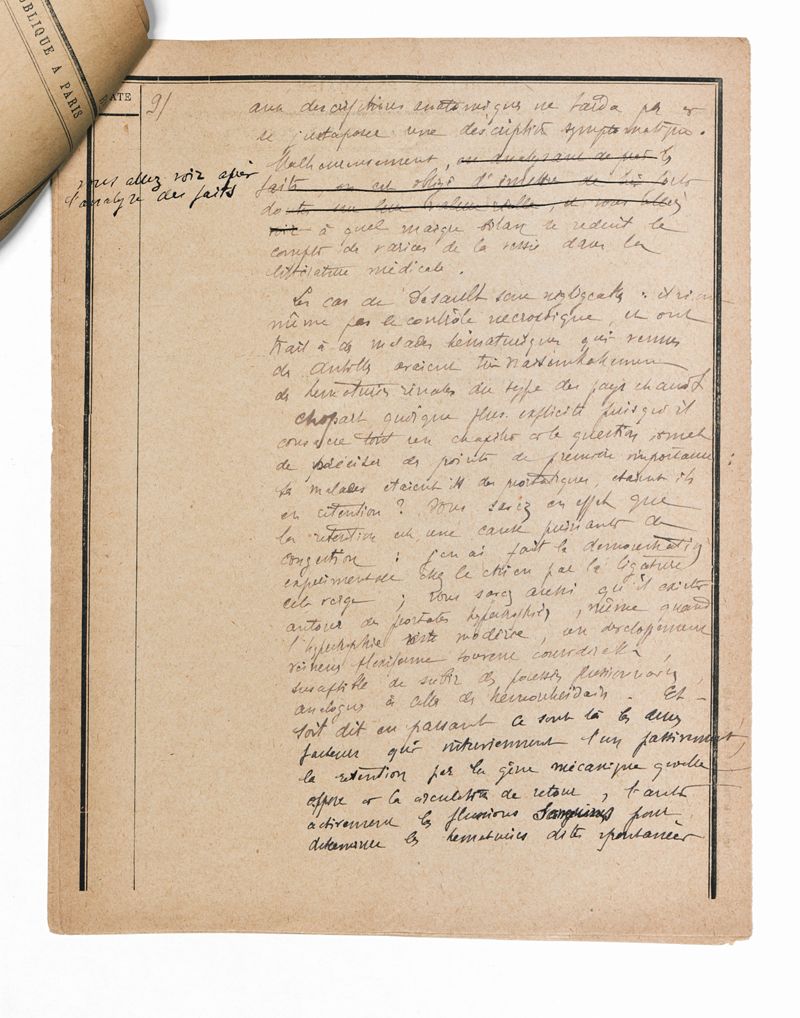 PUBLIQUE À PARIS
ATE
9/
aux descriptions anatomiques ne tarda pas à
se juxtaposer une description symptomatique.
Malheureusement, en analysant de près les
faits, on est obligé d'émettre de
doutes sur leur valeur réelle, et vous allez
voir à quel maigre bilan se réduit le
compte de varices de la vessie dans la
littérature médicale.
vous allez voir après
l'analyse des faits
Les cas de Desault sont négligeables : ils n'ont
même pas le contrôle nécropsique, et ont
trait à des malades hématuriques qui venus
des Antilles avaient très vraisemblablement
des hématuries rénales du type des pays chauds
Chopart quoique plus explicite puisqu'il
consacre tout un chapitre à la question omet
de préciser des points de première importance
Ses malades étaient ils des prostatiques, étaient ils
en rétention ? Vous savez en effet que
la rétention est une cause puissante de
congestion : j'en ai fait la démonstration
expérimentale chez le chien par la ligature
de la verge ; vous savez aussi qu'il existe
autour des prostates hypertrophiées, même quand
l'hypertrophie reste modérée, un développement
veineux plexiforme souvent considérable,
susceptible de subir des poussées fluxionnaires,
analogues à celles des hémorrhoïdaires. Et
soit dit en passant ce sont là les deux
facteurs qui interviennent l'un passivement,
la rétention par la gêne mécanique qu'elle
oppose à la circulation de retour, l'autre
activement les fluxions sanguines pour
déterminer les hématuries dites spontanées